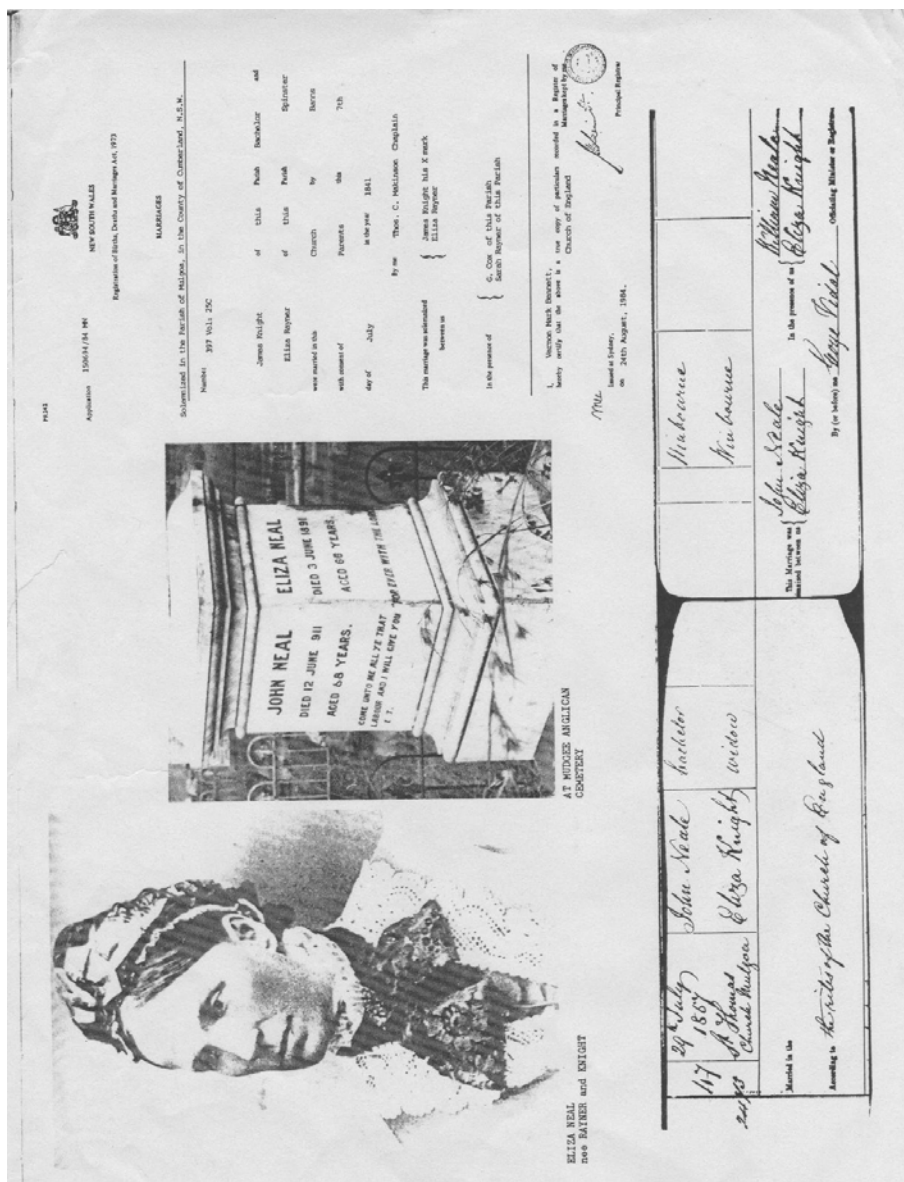 PR242
NEW SOUTH WALES
Registration of Births, Deaths and Marriages Act, 1973
Application 150694/84 MN
MARRIAGES
Solemnized in the Parish of Mulgoa, in the County of Cumberland, N.S.W.
Number 397 Vol: 25C
James Knight of this Parish Bachelor and
Eliza Rayner of this Parish Spinster
were married in this Church by Banns
with consent of Parents this 7th
day of July in the year 1841
By me Thos. C. Makinson Chaplain
This marriage was solemnized between us { James Knight his X mark
Eliza Rayner
In the presence of { G. Cox of this Parish
Sarah Rayner of this Parish
I, Vernon Mark Bennett,
hereby certify that the above is a true copy of particulars recorded in a Register of
Marriages kept by me
Church of England
Issued at Sydney,
on 24th August, 1984.
Principal Registrar
JOHN NEAL
DIED 12 JUNE 911
AGED 68 YEARS.
COME UNTO ME ALL YE THAT
LABOUR AND I WILL GIVE YOU
ELIZA NEAL
DIED 3 JUNE 1891
AGED 66 YEARS.
FOR EVER WITH THE LORD
AT MUDGEE ANGLICAN
CEMETERY
ELIZA NEAL
nee RAYNER and KNIGHT
147 29th July 1857 John Neale bachelor Winbourne
St Thomas Church Mulgoa Eliza Knight widow Winbourne
Married in the
According to the rites of the Church of England
This Marriage was
between us { John Neale
Eliza Knight
In the presence of us { William Neale
Eliza Knight
By (or before) me George Vidal Officiating Minister or Registrar